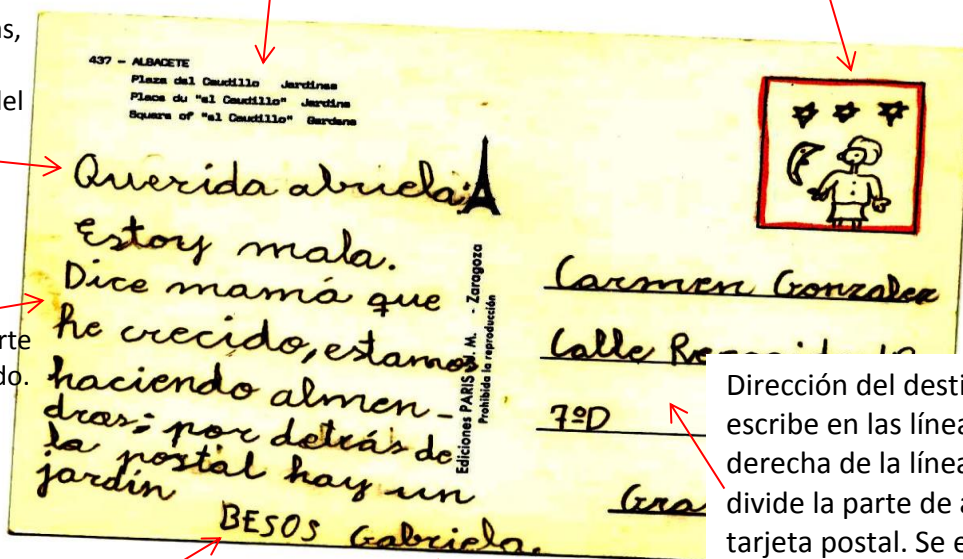 as,
del
437 - ALBACETE
Plaza del Caudillo Jardines
Place du "el Caudillo" Jardins
Square of "el Caudillo" Gardens
Querida abuela:
Estoy mala.
Dice mamá que
he crecido, estamos
haciendo almen-
dras; por detrás de
la postal hay un
jardín
BESOS Gabriela.
rte
do.
Ediciones PARIS J. M. - Zaragoza
Prohibida la reproducción
Carmen Gonzalez
Calle
7ºD
Gra
Dirección del desti
escribe en las línea
derecha de la línea
divide la parte de a
tarjeta postal. Se e